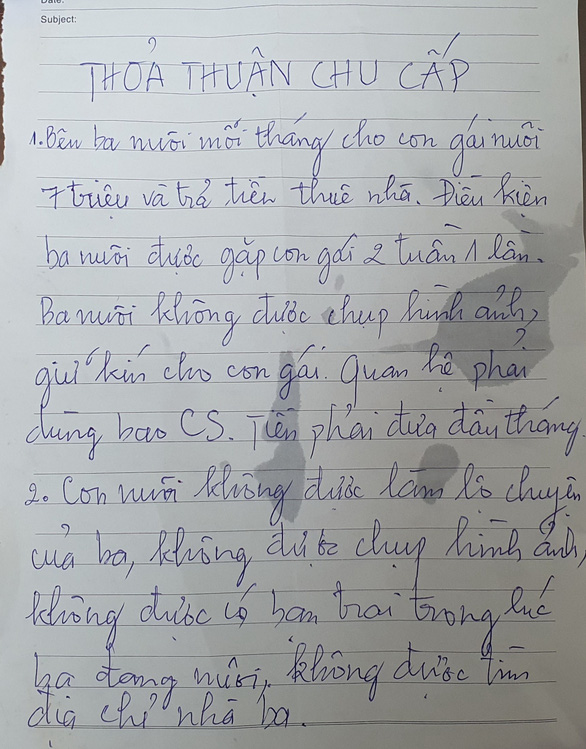 Date:
Subject:
THỎA THUẬN CHU CẤP
1. Bên ba nuôi mỗi tháng cho con gái nuôi
7 triệu và trả tiền thuê nhà. Điều kiện
ba nuôi được gặp con gái 2 tuần 1 lần.
Ba nuôi không được chụp hình ảnh,
giữ kín cho con gái. Quan hệ phải
dùng bao CS. Tiền phải đưa đầu tháng
2. Con nuôi không được làm lộ chuyện
của ba, không được chụp hình ảnh,
không được có bạn trai trong lúc
ba đang nuôi, không được tìm
địa chỉ nhà ba.